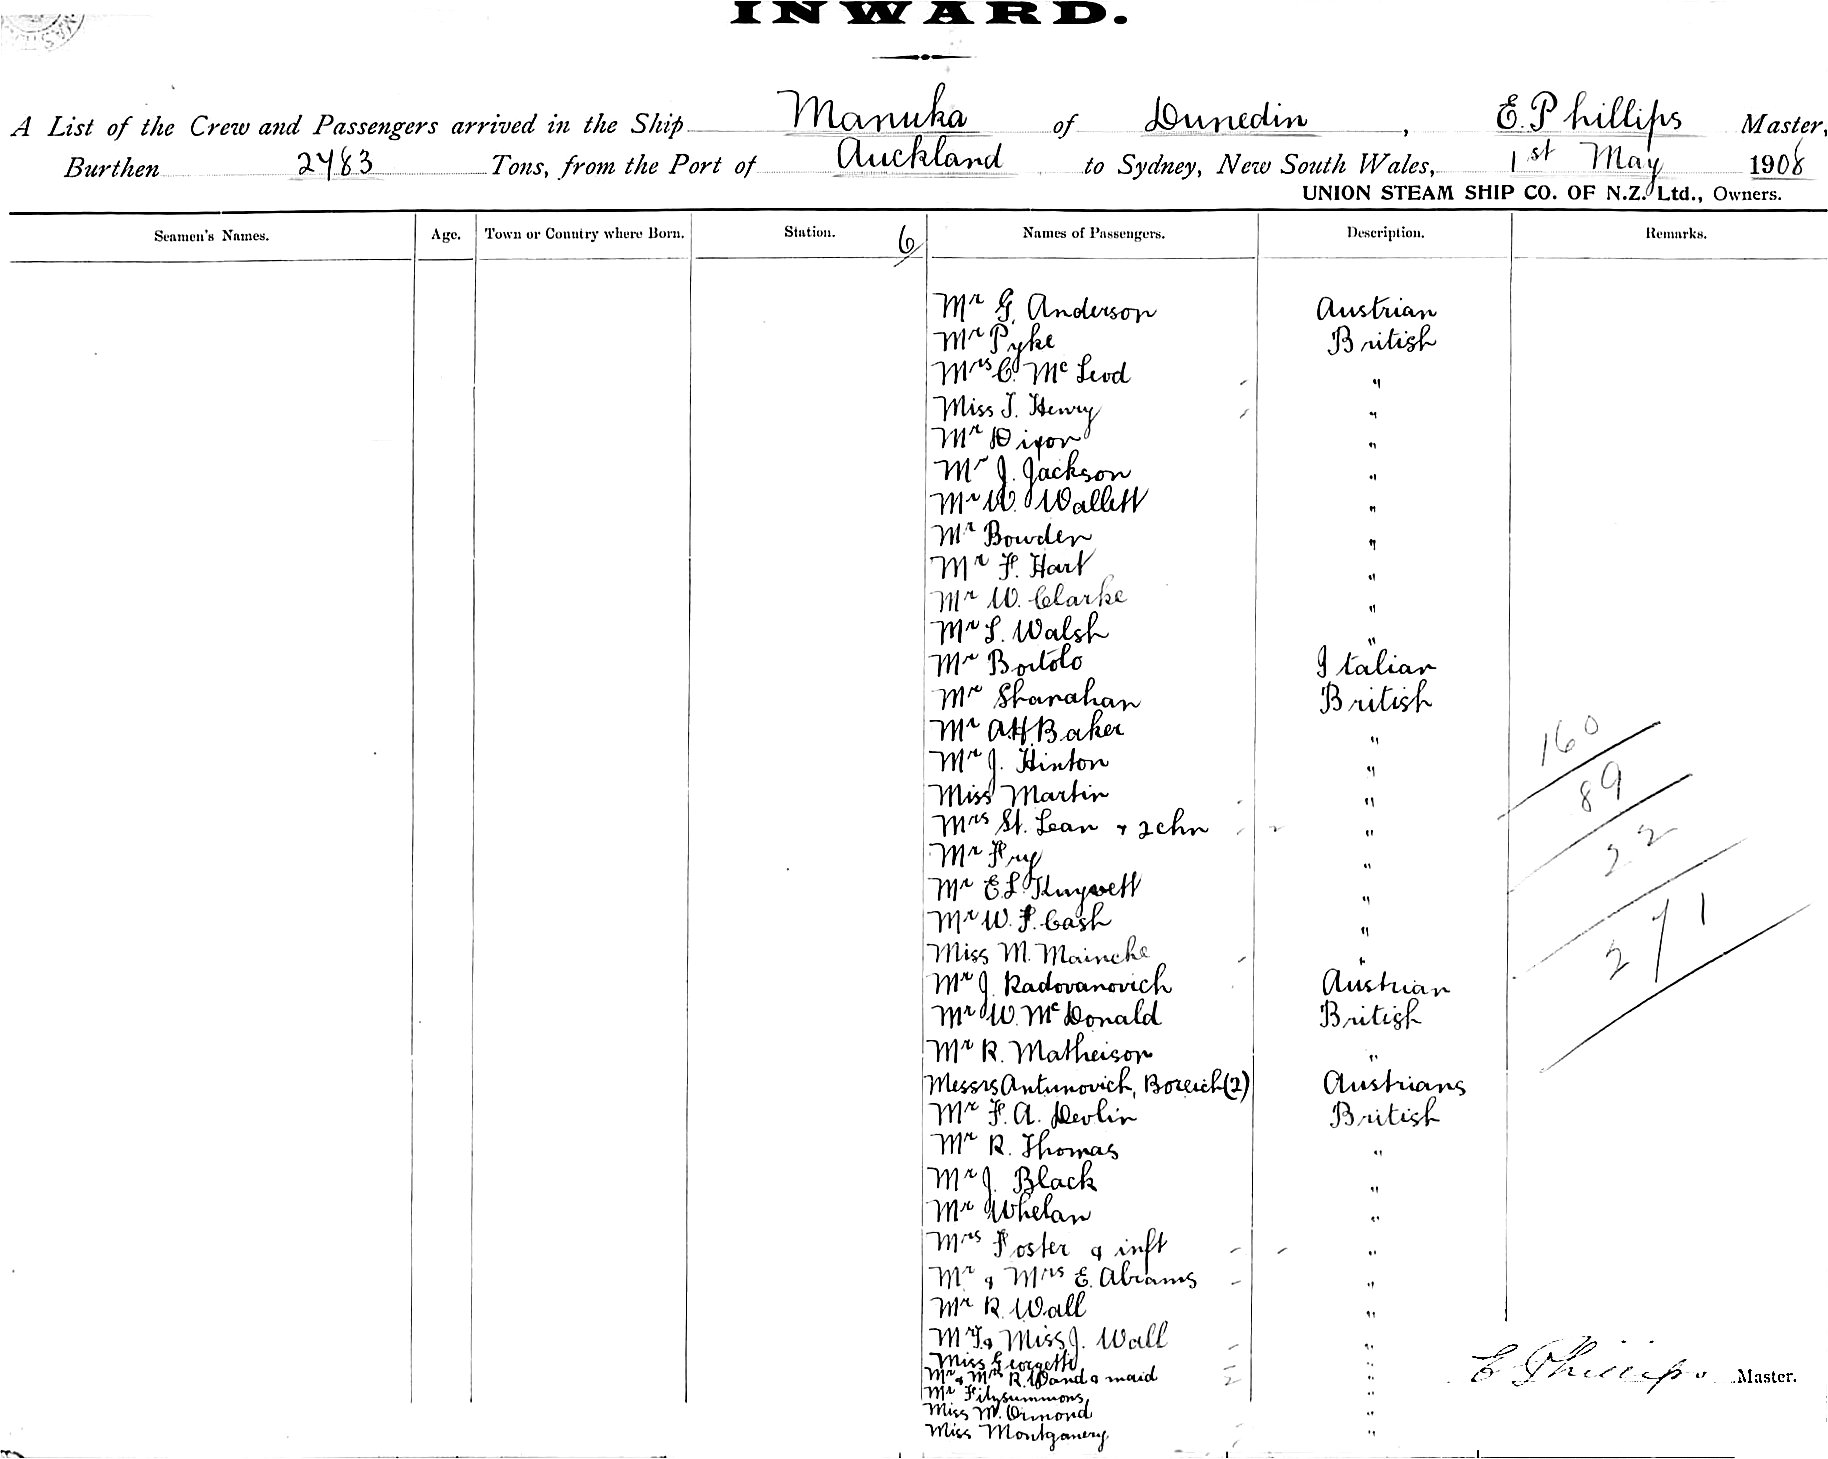 INWARD.
A List of the Crew and Passengers arrived in the Ship Manuka of Dunedin, E. Phillips Master,
Burthen 2483 Tons, from the Port of Auckland to Sydney, New South Wales, 1st May 1908
UNION STEAM SHIP CO. OF N.Z. Ltd., Owners.
Seamen's Names. Age. Town or Country where Born. Station. 6 Names of Passengers. Description. Remarks.
Mr G. Anderson Austrian
Mr Pyke British
Mrs C. McLeod "
Miss J. Henry "
Mr Dixon "
Mr J. Jackson "
Mr W. Wallett "
Mr Bowden "
Mr F. Hart "
Mr W. Clarke "
Mr L. Walsh "
Mr Bortolo Italian
Mr Shanahan British
Mr A.H. Baker "
Mr J. Hinton "
Miss Martin "
Mrs St. Lean & 2 chn "
Mr Fry "
Mr E.L. "
Mr W. F. Cash "
Miss M. Maincke "
Mr J. Radovanovich Austrian
Mr W. McDonald British
Mr R. Matheison "
Messrs Antunovich, Bozeich (2) Austrians
Mr F. A. Devlin British
Mr R. Thomas "
Mr J. Black "
Mr Whelan "
Mrs Foster & inft "
Mr & Mrs E. Abrams "
Mr R. Wall "
Mr T. & Miss J. Wall "
Miss Georgette "
Mr & Mrs R. Wand & maid "
Mr Fitzsummons "
Miss M. Ormond "
Miss Montganery "
160
89
22
271
E Phillips Master.